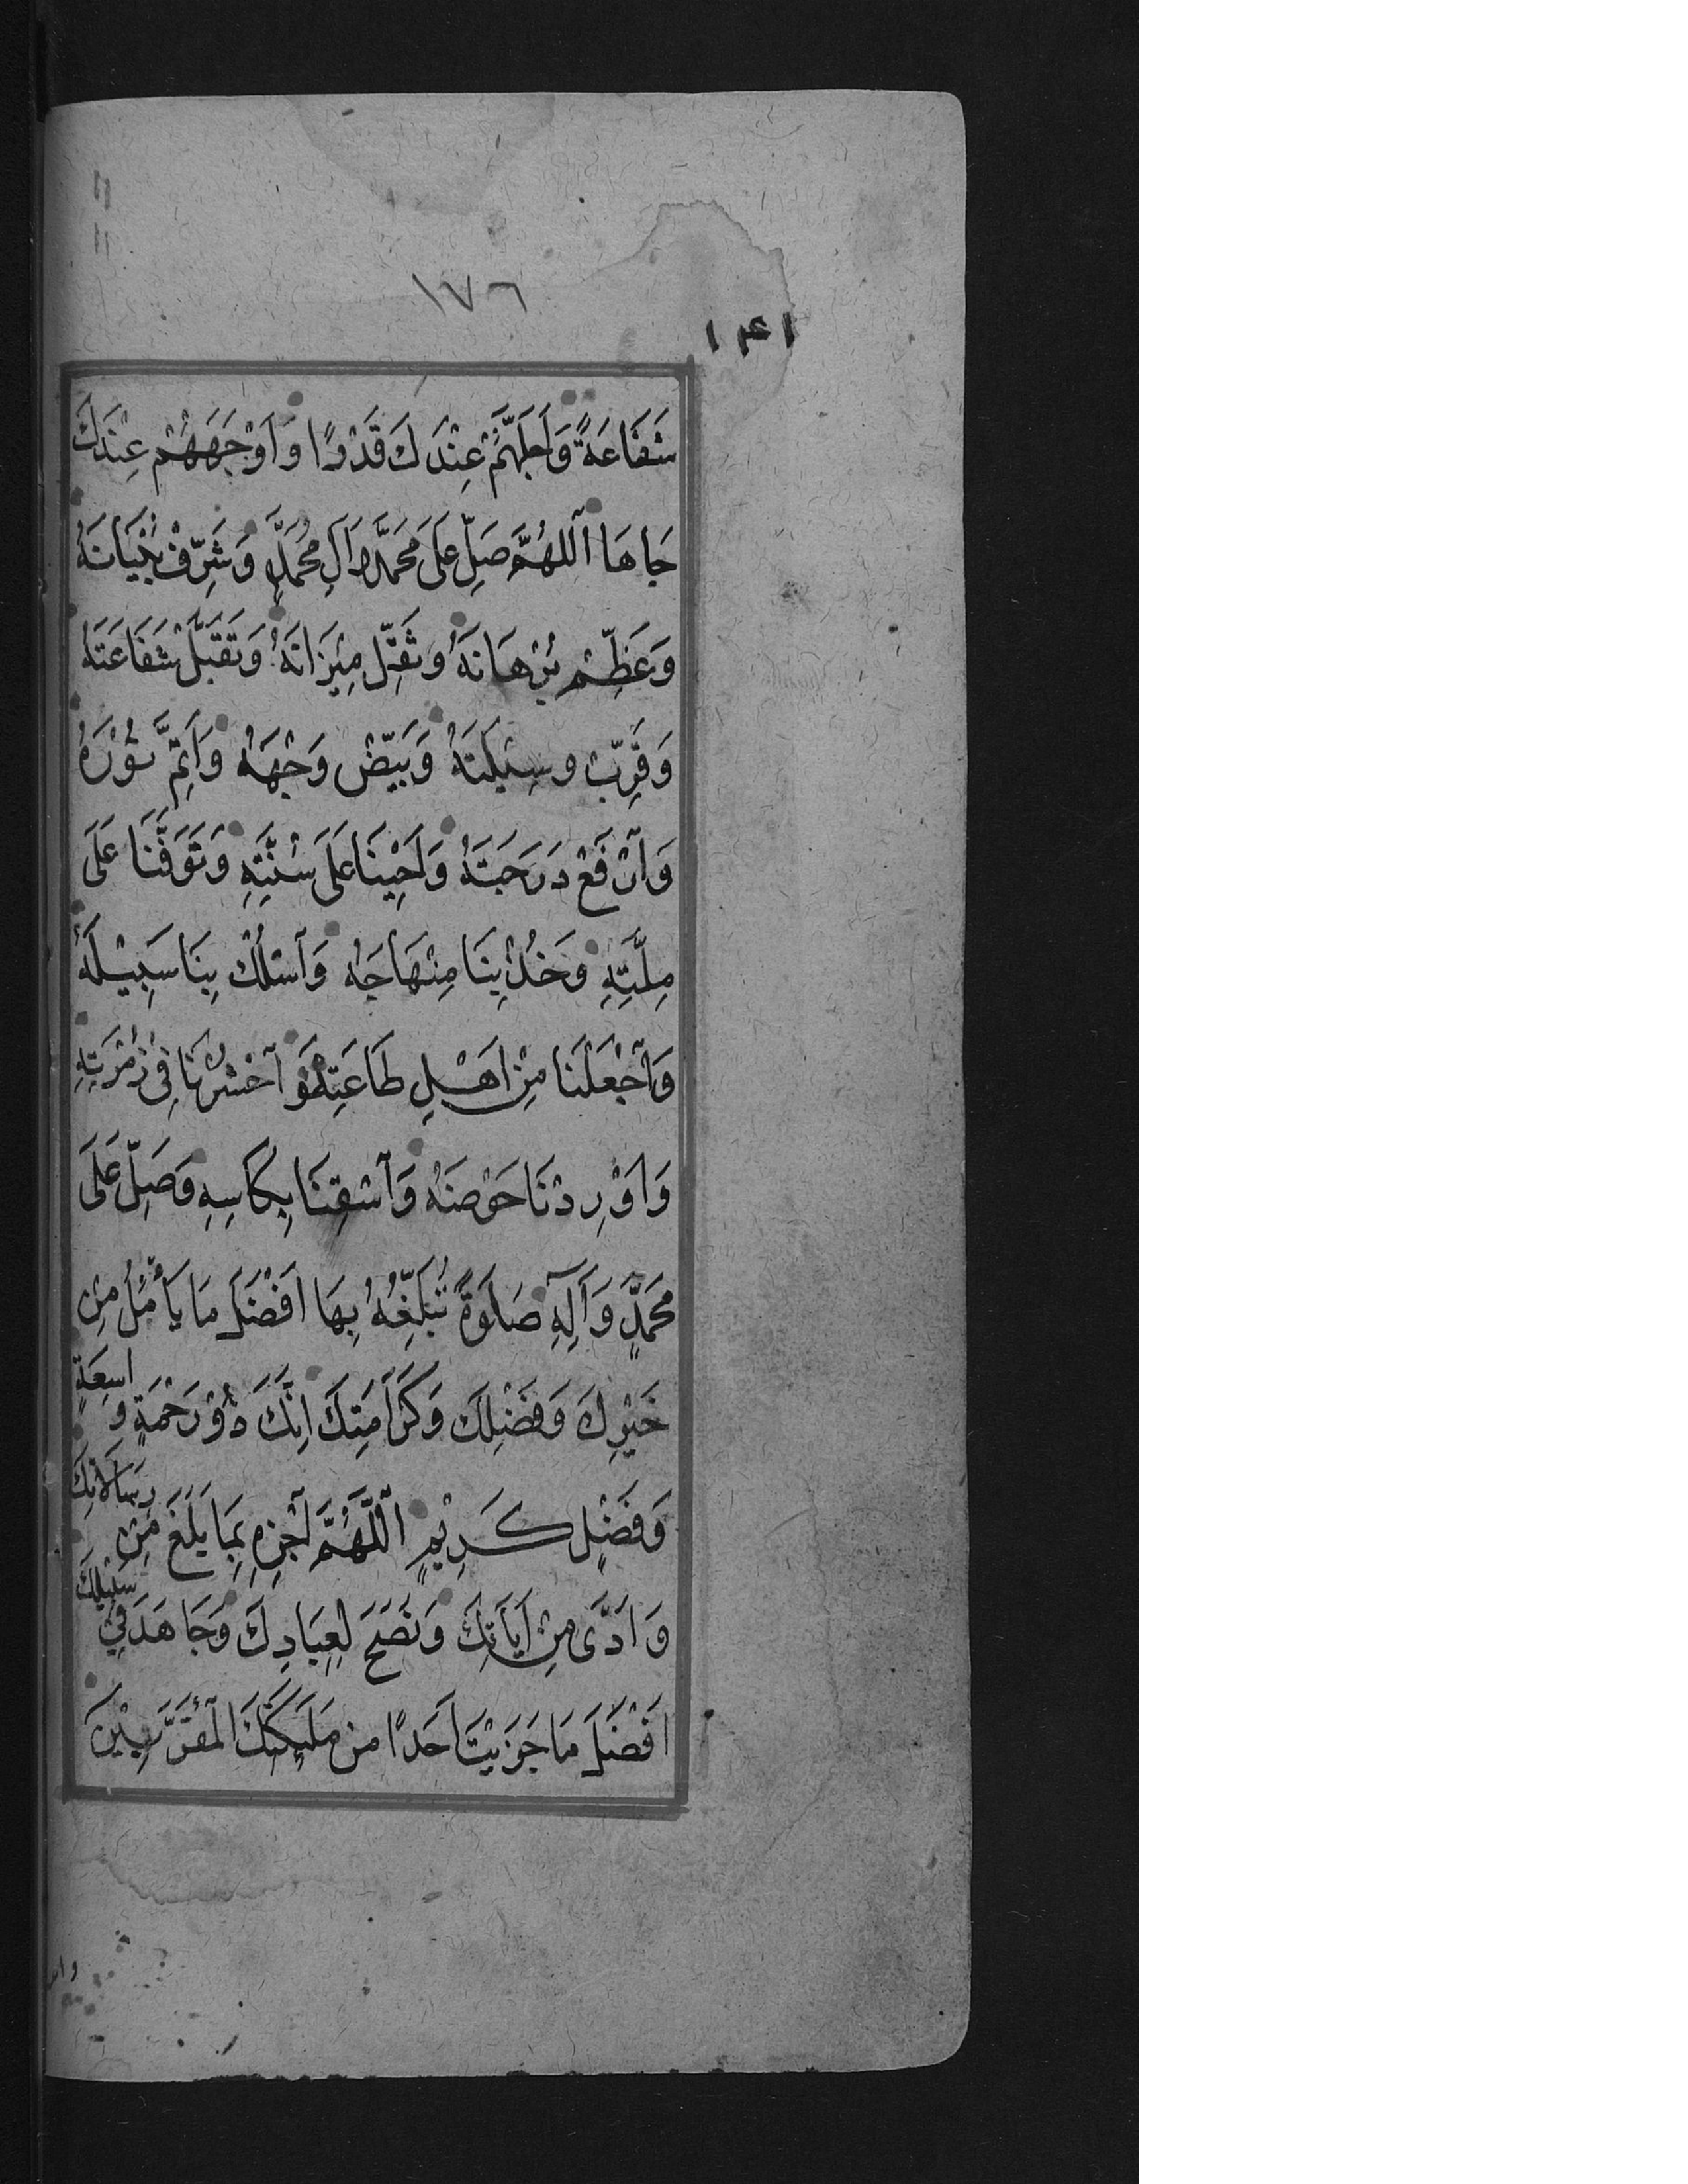 ١٧٦
١٤١
شَفَاعَةً وَاَجَلَّهُمْ عِنْدَكَ قَدْرًا وَاَوْجَهَهُمْ عِنْدَكَ
جَاهَا اَللهُمَّ صَلِّ عَلَى مُحَمَّدٍ وَآلِ مُحَمَّدٍ وَشَرِّفْ بُنْيَانَهُ
وَعَظِّمْ بُرْهَانَهُ وَثَقِّلْ مِيْزَانَهُ وَتَقَبَّلْ شَفَاعَتَهُ
وَقَرِّبْ وَسِيْلَتَهُ وَبَيِّضْ وَجْهَهُ وَاَتِمَّ نُوْرَهُ
وَاَرْفَعْ دَرَجَتَهُ وَاَحْيِنَا عَلَى سُنَّتِهِ وَتَوَفَّنَا عَلَى
مِلَّتِهِ وَخُذْ بِنَا مِنْهَاجَهُ وَاَسْلُكْ بِنَا سَبِيْلَهُ
وَاَجْعَلْنَا مِنْ اَهْلِ طَاعَتِهِ وَاَحْشُرْنَا فِي زُمْرَتِهِ
وَاَوْرِدْنَا حَوْضَهُ وَاَسْقِنَا بِكَاسِهِ وَصَلِّ عَلَى
مُحَمَّدٍ وَآلِهِ صَلوَةً تُبَلِّغُهُ بِهَا اَفْضَلَ مَا يَأْمُلُ مِنْ
خَيْرِكَ وَفَضْلِكَ وَكَرَامَتِكَ اِنَّكَ ذُوْ رَحْمَةٍ وَاسِعَةٍ
وَفَضْلٍ كَرِيْمٍ اَللّهُمَّ اَجْزِهِ بِمَا بَلَّغَ مِنْ رِسَالَاتِكَ
وَاَدَّى مِنْ اَيَاتِكَ وَنَصَحَ لِعِبَادِكَ وَجَاهَدَ فِيْ سَبِيْلِكَ
اَفْضَلَ مَا جَزَيْتَ اَحَدًا مِنْ مَلئِكَتِكَ الْمُقَرَّبِيْنَ